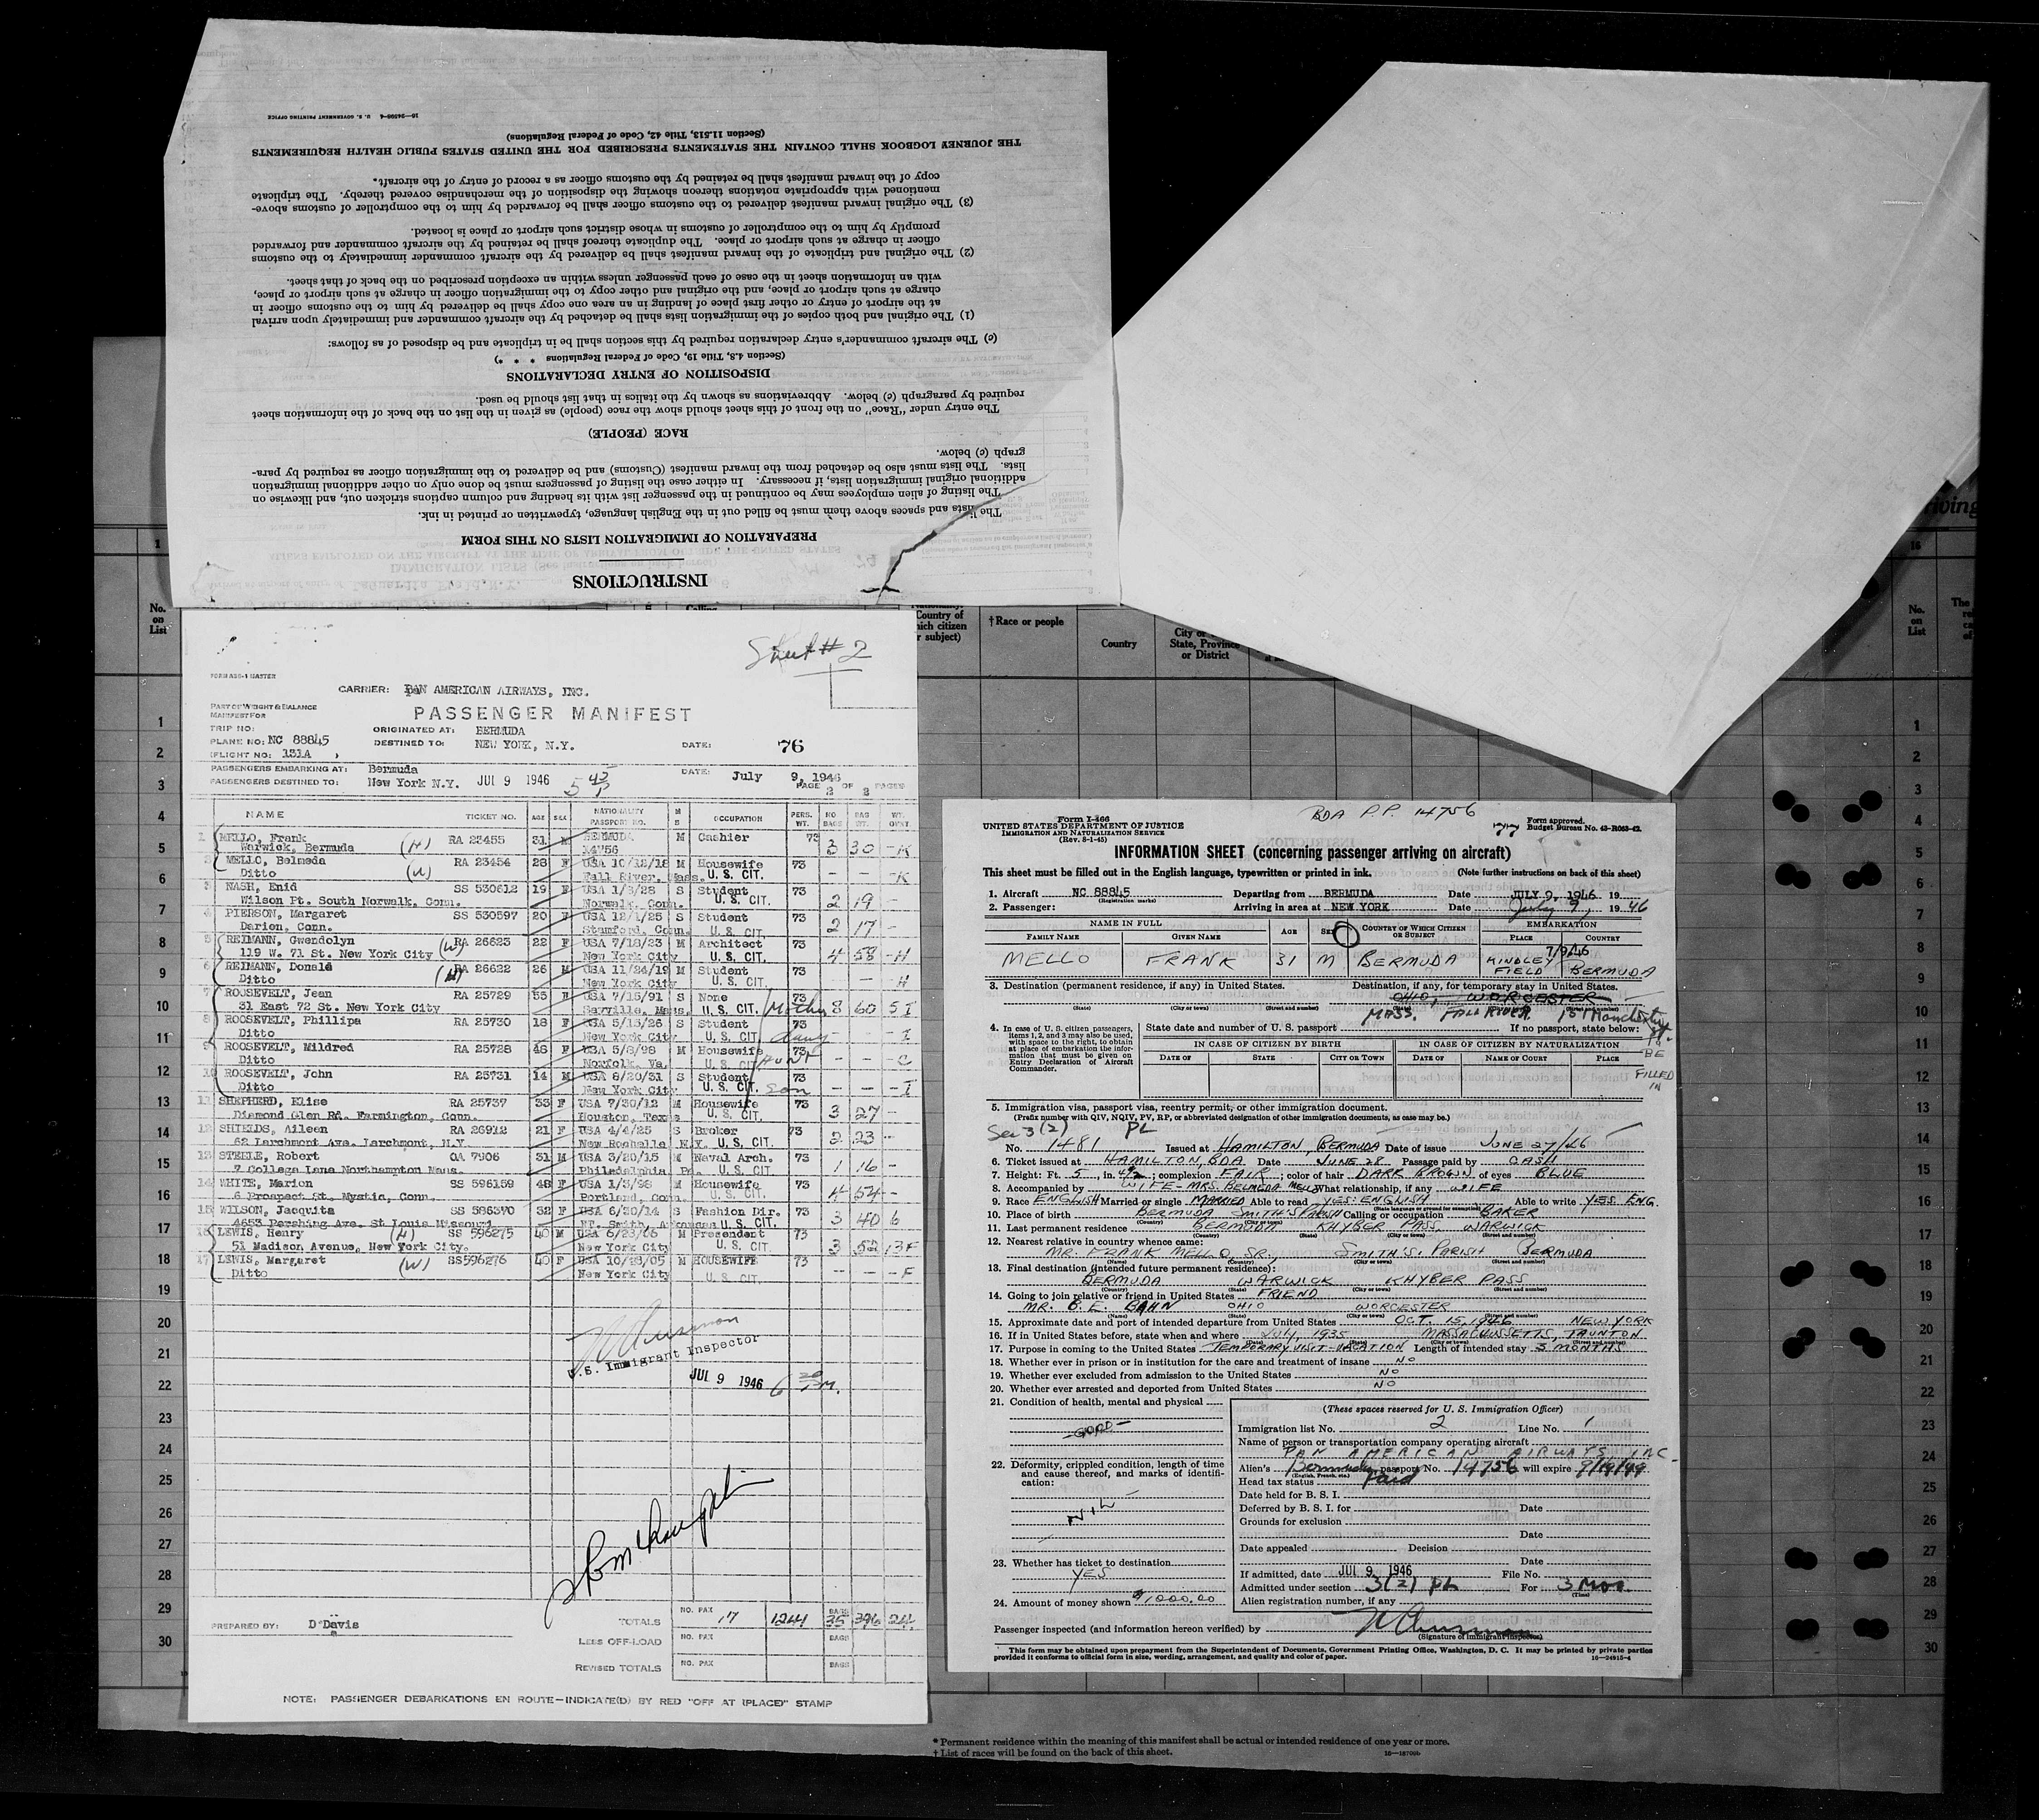 INSTRUCTIONS
PREPARATION OF IMMIGRATION LISTS ON THIS FORM
The lists and spaces above them must be filled out in the English language, typewritten or printed in ink.
The listing of alien employees may be continued in the passenger list with its heading and column captions stricken out, and likewise on
additional original immigration lists, if necessary. In either case the listing of passengers must be done only on other additional immigration
lists. The lists must also be detached from the inward manifest (Customs) and be delivered to the immigration officer as required by para-
graph (c) below.
RACE (PEOPLE)
The entry under "Race" on the front of this sheet should show the race (people) as given in the list on the back of the information sheet
required by paragraph (c) below. Abbreviations as shown by the italics in that list should be used.
DISPOSITION OF ENTRY DECLARATIONS
(Section 4.8, Title 19, Code of Federal Regulations * * *)
(c) The aircraft commander's entry declaration required by this section shall be in triplicate and be disposed of as follows:
(1) The original and both copies of the immigration lists shall be detached by the aircraft commander and immediately upon arrival
at the airport of entry or other first place of landing in an area one copy shall be delivered by him to the customs officer in
charge at such airport or place, and the original and other copy to the immigration officer in charge at such airport or place,
with an information sheet in the case of each passenger unless within an exception prescribed on the back of that sheet.
(2) The original and triplicate of the inward manifest shall be delivered by the aircraft commander immediately to the customs
officer in charge at such airport or place. The duplicate thereof shall be retained by the aircraft commander and forwarded
promptly by him to the comptroller of customs in whose district such airport or place is located.
(3) The original inward manifest delivered to the customs officer shall be forwarded by him to the comptroller of customs above-
mentioned with appropriate notations thereon showing the disposition of the merchandise covered thereby. The triplicate
copy of the inward manifest shall be retained by the customs officer as a record of entry of the aircraft.*
THE JOURNEY LOGBOOK SHALL CONTAIN THE STATEMENTS PRESCRIBED FOR THE UNITED STATES PUBLIC HEALTH REQUIREMENTS
(Section 11.513, Title 42, Code of Federal Regulations)
U. S. GOVERNMENT PRINTING OFFICE
Sheet # 2
FORM ASG-1 MASTER
CARRIER: PAN AMERICAN AIRWAYS, INC.
PASSENGER MANIFEST
PART OF WEIGHT & BALANCE
MANIFEST FOR
TRIP NO: ORIGINATED AT: BERMUDA
PLANE NO: NC 88845 DESTINED TO: NEW YORK, N.Y. DATE: 76
FLIGHT NO: 131A
PASSENGERS EMBARKING AT: Bermuda DATE: July 9, 1946
PASSENGERS DESTINED TO: New York N.Y. JUL 9 1946 5 45 P PAGE 2 OF 2 PAGES
NAME TICKET NO. AGE SEX NATIONALITY PASSPORT NO. M S OCCUPATION PERS. WT. NO BAGS BAG WT.
1 MELLO, Frank (H) RA 23455 31 M BERMUDA M Cashier 73
Warwick, Bermuda 14756 3 30 - K
2 MELLO, Belmeda (W) RA 23454 28 F USA 10/12/18 M Housewife 73
Ditto Fall River, Mass. U. S. CIT. - - - K
3 NASH, Enid SS 530612 19 F USA 1/3/28 S Student 73
Wilson Pt. South Norwalk, Conn. Norwalk, Conn. U. S. CIT. 2 19 -
4 PIERSON, Margaret SS 530597 20 F USA 12/1/25 S Student 73
Darien, Conn. Stamford, Conn. U. S. CIT. 2 17 -
5 REIMANN, Gwendolyn (W) RA 26623 22 F USA 7/18/23 M Architect 73
119 W. 71 St. New York City New York City U. S. CIT. 4 58 - H
6 REIMANN, Donald (H) RA 26622 26 M USA 11/24/19 M Student 73
Ditto New York City U. S. CIT. - - H
7 ROOSEVELT, Jean RA 25729 55 F USA 7/15/91 S None 73
31 East 72 St. New York City Sayville, Mass. U. S. CIT. Mother 8 60 5 I
8 ROOSEVELT, Phillipa RA 25730 18 F USA 5/15/26 S Student 73
Ditto New York City U. S. CIT. - I
9 ROOSEVELT, Mildred RA 25728 48 F USA 5/8/98 M Housewife 73
Ditto Norfolk, Va. U. S. CIT. AUNT - - - C
10 ROOSEVELT, John RA 25731 14 M USA 8/20/31 S Student 73
Ditto New York City U. S. CIT. son - - - I
11 SHEPHERD, Elise RA 25737 33 F USA 7/30/12 M Housewife 73
Diamond Glen Rd. Farmington, Conn. Houston, Texas U. S. CIT. 3 27 -
12 SHIELDS, Aileen RA 26912 21 F USA 4/4/25 S Broker 73
62 Larchmont Ave. Larchmont, N.Y. New Rochelle N.Y. U. S. CIT. 2 23 -
13 STEELE, Robert OA 7906 31 M USA 3/20/15 M Naval Arch. 73
7 College Lane Northampton Mass. Philadelphia Pa. U. S. CIT. 1 16 -
14 WHITE, Marion SS 596159 48 F USA 1/3/98 M Housewife 73
6 Prospect St. Mystic, Conn. Portland, Conn. U. S. CIT. 4 54 -
15 WILSON, Jacquita SS 586370 32 F USA 6/30/14 S Fashion Dir. 73
4653 Pershing Ave. St Louis Missouri FT. Smith, Arkansas U. S. CIT. 3 40 6
16 LEWIS, Henry (H) SS 596275 40 M USA 6/23/06 M President 73
51 Madison Avenue, New York City. New York City U. S. CIT. 3 52 13 F
17 LEWIS, Margaret (W) SS596276 40 F USA 10/28/05 M HOUSEWIFE 73
Ditto New York City U. S. CIT. - - - F
U.S. Immigrant Inspector
JUL 9 1946 6 20 P.M.
PREPARED BY: D Davis
TOTALS NO. PAX 17 1244 BAGS 35 396 24
LESS OFF-LOAD NO. PAX BAGS
REVISED TOTALS NO. PAX BAGS
NOTE: PASSENGER DEBARKATIONS EN ROUTE—INDICATE(D) BY RED "OFF AT (PLACE)" STAMP
BDA P.P. 14756
Form I-466
UNITED STATES DEPARTMENT OF JUSTICE
IMMIGRATION AND NATURALIZATION SERVICE
(Rev. 8-1-45)
Form approved.
Budget Bureau No. 43-R063-42.
INFORMATION SHEET (concerning passenger arriving on aircraft)
This sheet must be filled out in the English language, typewritten or printed in ink. (Note further instructions on back of this sheet)
1. Aircraft NC 88845 Departing from BERMUDA Date JULY 9, 1946 19
(Registration marks)
2. Passenger: Arriving in area at NEW YORK Date July 9, 1946
NAME IN FULL AGE SEX COUNTRY OF WHICH CITIZEN OR SUBJECT EMBARKATION
FAMILY NAME GIVEN NAME PLACE COUNTRY
7/9/46
MELLO FRANK 31 M BERMUDA KINDLEY FIELD BERMUDA
3. Destination (permanent residence, if any) in United States. Destination, if any, for temporary stay in United States.
OHIO, WORCESTER
(State) (City or town) (Street and number)
MASS. FALL RIVER 151 Manchester St.
4. In case of U. S. citizen passengers, items 1, 2, and 3 may also be used, with space to the right, to obtain at place of embarkation the information that must be given on Entry Declaration of Aircraft Commander.
State date and number of U. S. passport If no passport, state below:
IN CASE OF CITIZEN BY BIRTH IN CASE OF CITIZEN BY NATURALIZATION
DATE OF STATE CITY OR TOWN DATE OF NAME OF COURT PLACE
TO BE FILLED IN
5. Immigration visa, passport visa, reentry permit, or other immigration document.
(Prefix number with QIV, NQIV, PV, RP, or abbreviated designation of other immigration documents, as case may be.)
Sec 3(2) PL
No. 1481 Issued at HAMILTON, BERMUDA Date of issue JUNE 27/46
6. Ticket issued at HAMILTON, BDA Date JUNE 28 Passage paid by CASH
7. Height: Ft. 5, in. 4½; complexion FAIR; color of hair DARK BROWN of eyes BLUE
8. Accompanied by WIFE - MRS. BELMEDA MELLO What relationship, if any WIFE
9. Race ENGLISH Married or single MARRIED Able to read YES: ENGLISH Able to write YES ENG.
(State language or ground for exemption)
10. Place of birth BERMUDA SMITH'S PARISH Calling or occupation BAKER
(Country) (City or town)
11. Last permanent residence BERMUDA KHYBER PASS WARWICK
(Country) (State) (City or town) (Street and number)
12. Nearest relative in country whence came:
MR. FRANK MELLO, SR. SMITH'S PARISH BERMUDA
(Name) (Country) (City or town) (Street and number)
13. Final destination (intended future permanent residence):
BERMUDA WARWICK KHYBER PASS
(Country) (State) (City or town) (Street and number)
14. Going to join relative or friend in United States FRIEND
MR. B. E. BAHN OHIO WORCESTER
(Name) (State) (City or town) (Street and number)
15. Approximate date and port of intended departure from United States OCT. 15, 1946 NEW YORK
16. If in United States before, state when and where JULY, 1935 MASSACHUSSETTS, TAUNTON
(Date) (State) (City or town) (Street and number)
17. Purpose in coming to the United States TEMPORARY VISIT-VACATION Length of intended stay 3 MONTHS
18. Whether ever in prison or in institution for the care and treatment of insane NO
19. Whether ever excluded from admission to the United States NO
20. Whether ever arrested and deported from United States NO
21. Condition of health, mental and physical
-GOOD-
22. Deformity, crippled condition, length of time and cause thereof, and marks of identification:
NIL -
23. Whether has ticket to destination
YES
24. Amount of money shown $1,000.00
(These spaces reserved for U. S. Immigration Officer)
Immigration list No. 2 Line No. 1
Name of person or transportation company operating aircraft
PAN AMERICAN AIRWAYS INC.
Alien's Bermuda passport No. 14756 will expire 9/19/49
(English, French, etc.)
Head tax status Paid
Date held for B. S. I.
Deferred by B. S. I. for Date
Grounds for exclusion
Date
Date appealed Decision
Date
If admitted, date JUL 9 1946 File No.
Admitted under section 3(2) PL For: 3 Mos.
(Time)
Alien registration number, if any
Passenger inspected (and information hereon verified) by
(Signature of immigrant inspector)
This form may be obtained upon prepayment from the Superintendent of Documents, Government Printing Office, Washington, D. C. It may be printed by private parties
provided it conforms to official form in size, wording, arrangement, and quality and color of paper. 16—24915-4
No. on List
Country of
† Race or people
Country
State, Province or District
No. on List
1
2
3
4
5
6
7
8
9
10
11
12
13
14
15
16
17
18
19
20
21
22
23
24
25
26
27
28
29
30
* Permanent residence within the meaning of this manifest shall be actual or intended residence of one year or more.
† List of races will be found on the back of this sheet.